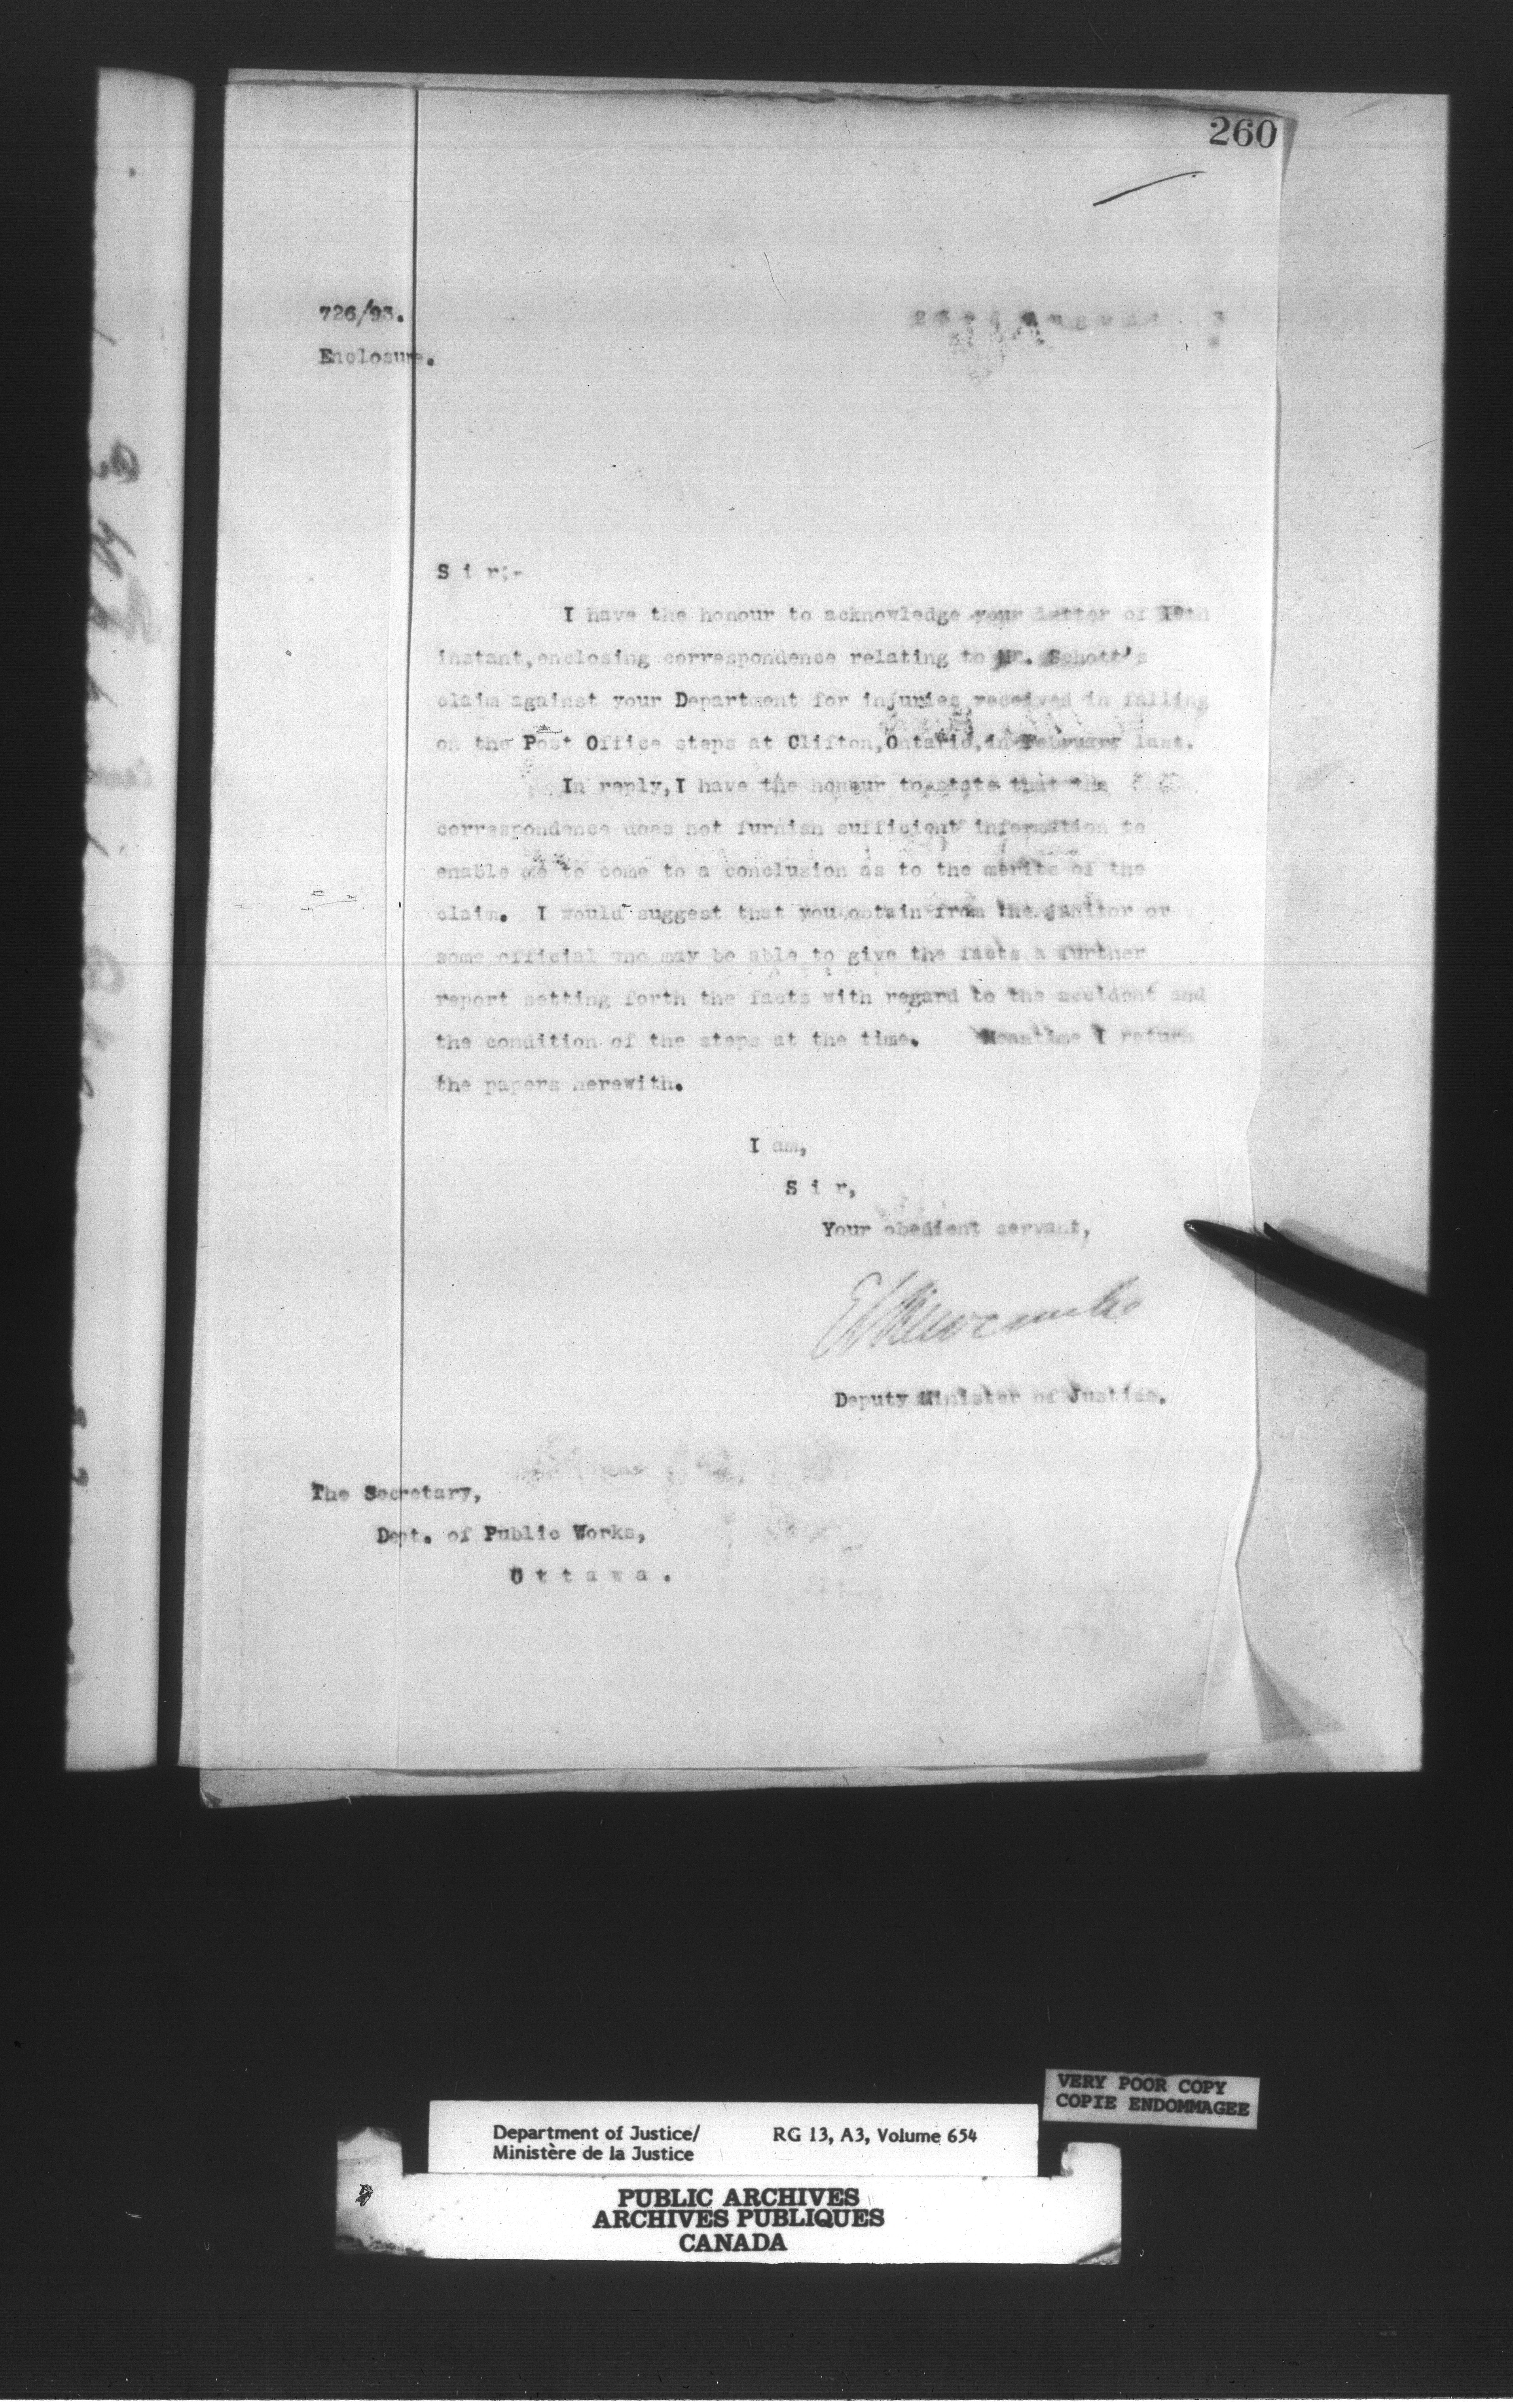 260
726/93.
23rd August 3
Enclosure.
S i r;-
I have the honour to acknowledge your letter of 19th
instant,enclosing correspondence relating to Mr. Schott's
claim against your Department for injuries received in falling
on the Post Office steps at Clifton,Ontario,in February last.
In reply,I have the honour to state that the
correspondence does not furnish sufficient information to
enable me to come to a conclusion as to the merits of the
claim. I would suggest that you obtain from the janitor or
some official who may be able to give the facts a further
report setting forth the facts with regard to the accident and
the condition of the steps at the time. Meantime I return
the papers herewith.
I am,
S i r,
Your obedient servant,
E L Newcombe
Deputy Minister of Justice.
The Secretary,
Dept. of Public Works,
O t t a w a .
VERY POOR COPY
COPIE ENDOMMAGEE
Department of Justice/ RG 13, A3, Volume 654
Ministère de la Justice
PUBLIC ARCHIVES
ARCHIVES PUBLIQUES
CANADA